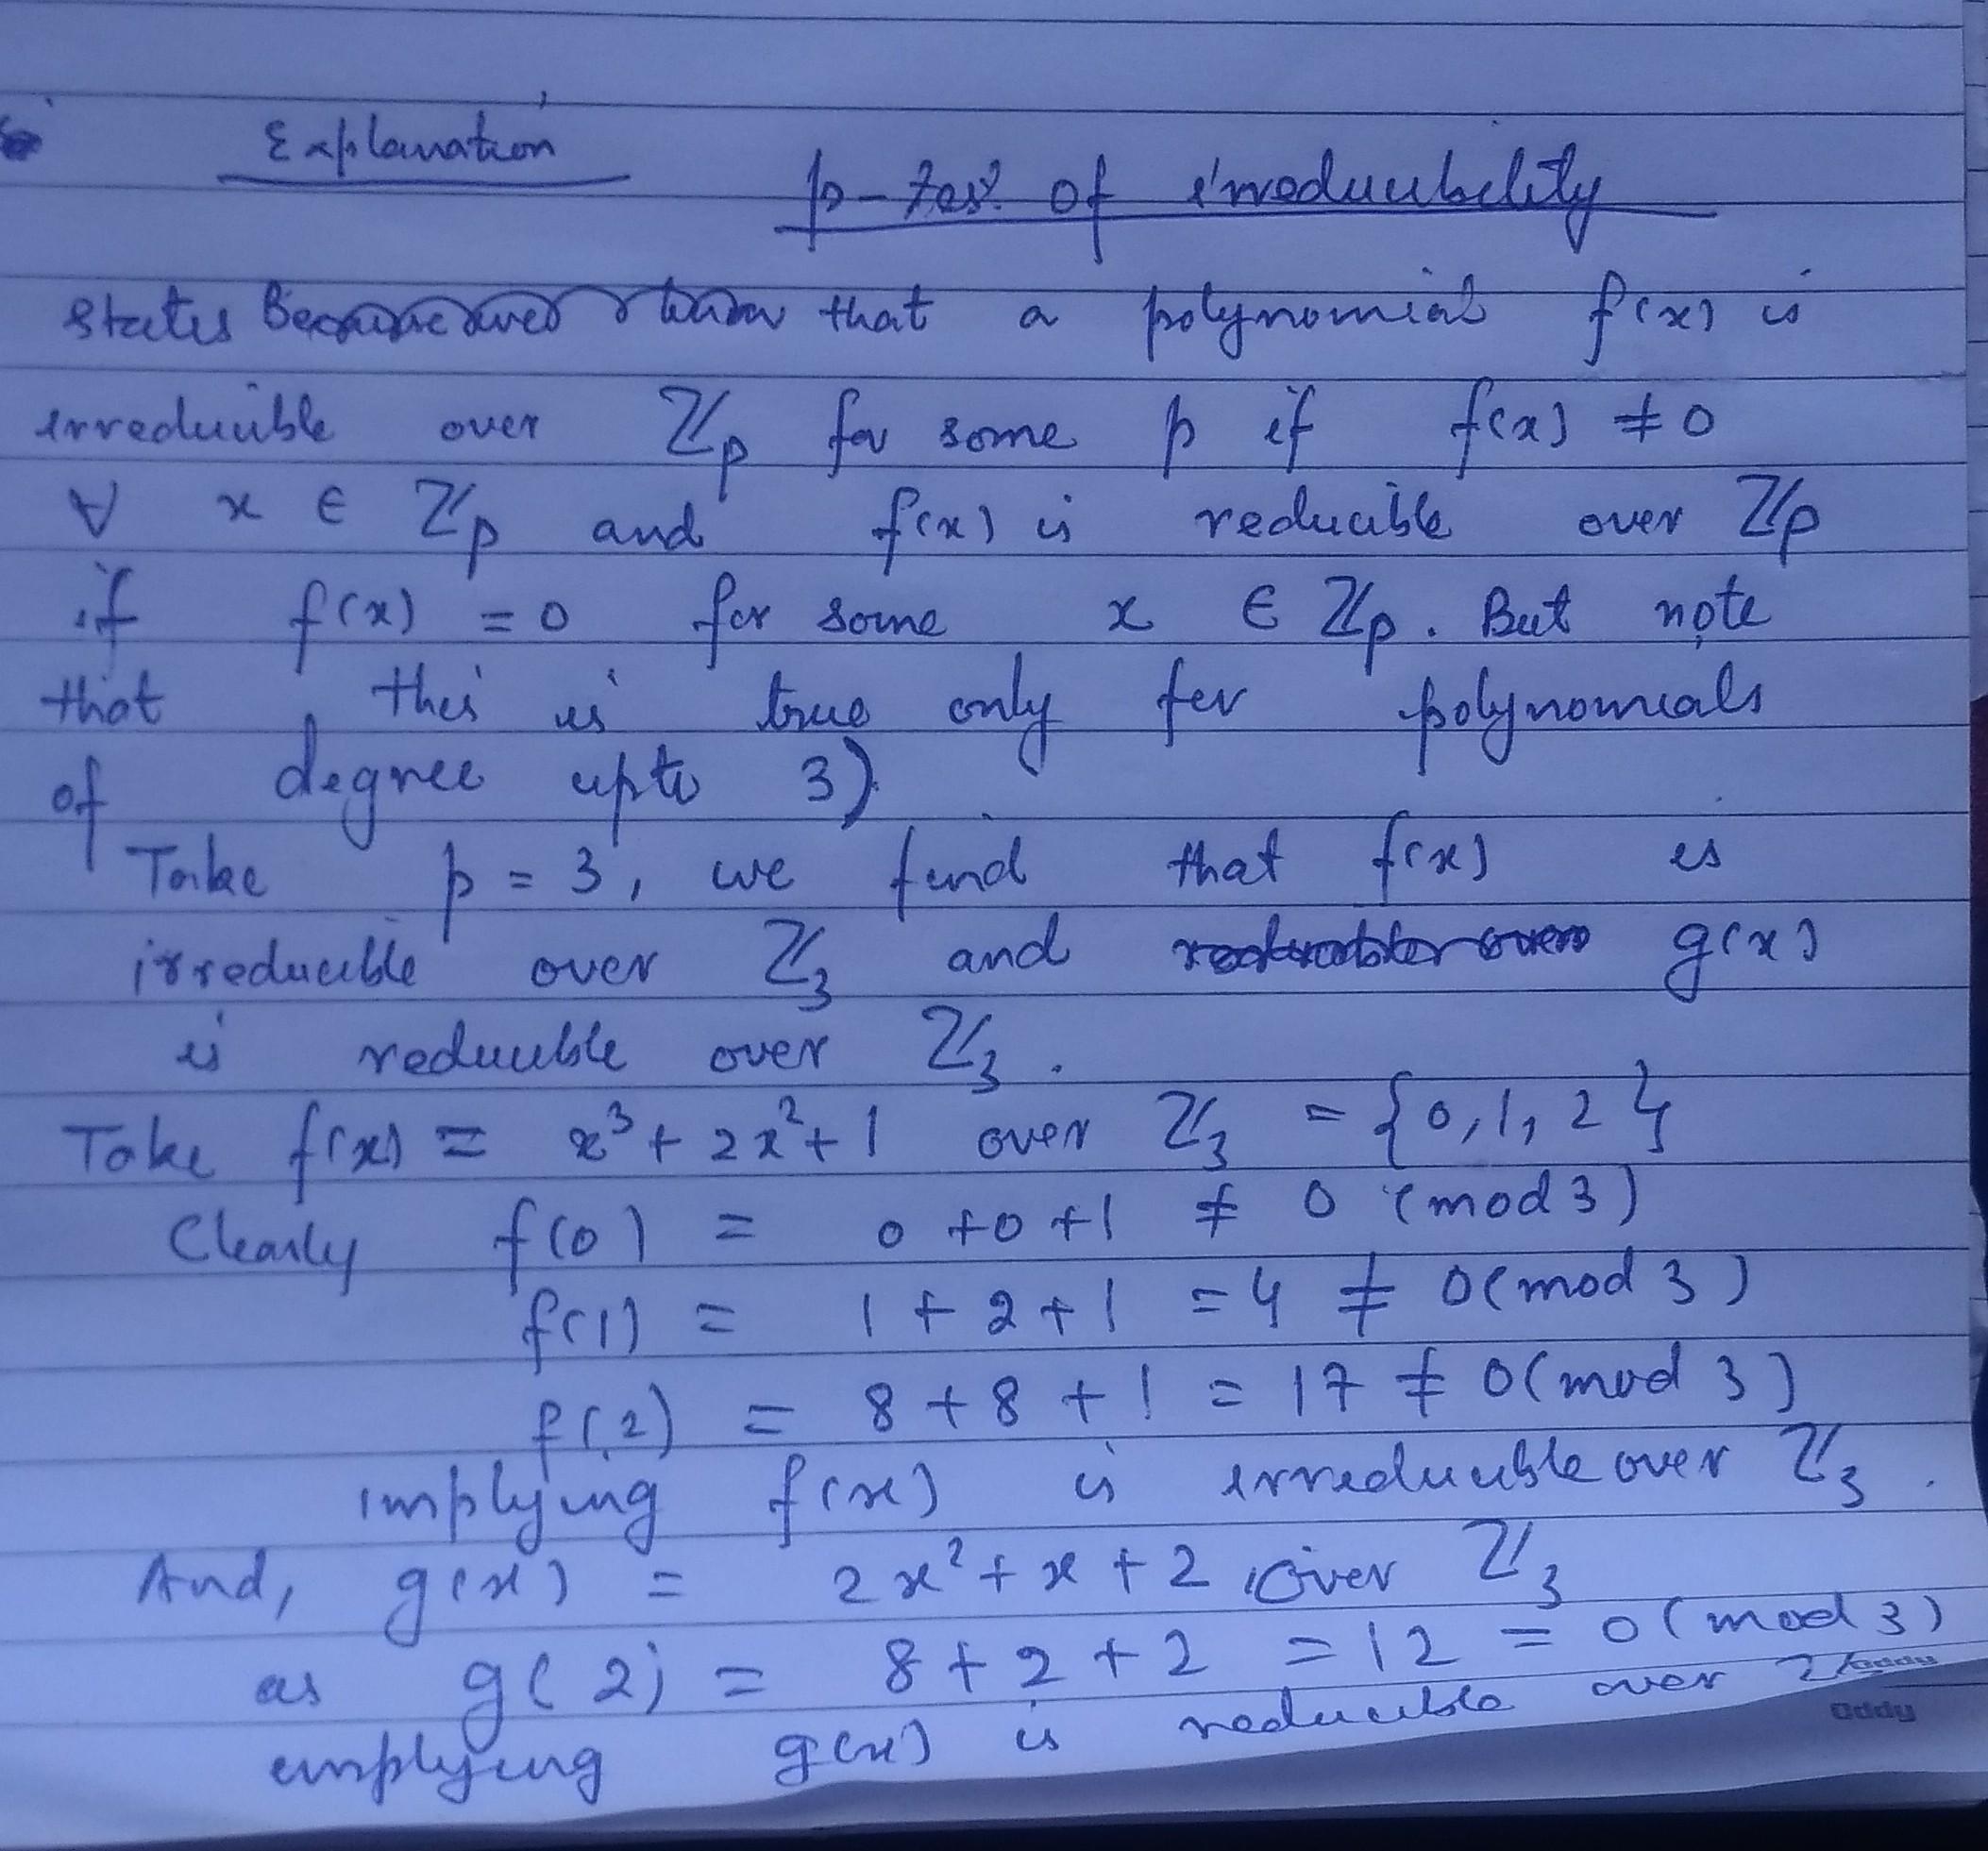 Explanation
p-test of irreducibility
states that a polynomial f(x) is
irreducible over ℤp for some p if f(x) ≠ 0
∀ x ∈ ℤp and f(x) is reducible over ℤp
if f(x) = 0 for some x ∈ ℤp. But note
that this is true only for polynomials
of degree upto 3)
Take p = 3, we find that f(x) is
irreducible over ℤ3 and g(x)
is reducible over ℤ3.
Take f(x) = x³ + 2x² + 1 over ℤ3 = {0, 1, 2}
Clearly f(0) = 0 + 0 + 1 ≠ 0 (mod 3)
f(1) = 1 + 2 + 1 = 4 ≠ 0 (mod 3)
f(2) = 8 + 8 + 1 = 17 ≠ 0 (mod 3)
implying f(x) is irreducible over ℤ3.
And, g(x) = 2x² + x + 2 over ℤ3
as g(2) = 8 + 2 + 2 = 12 = 0 (mod 3)
implying g(x) is reducible over
oddy